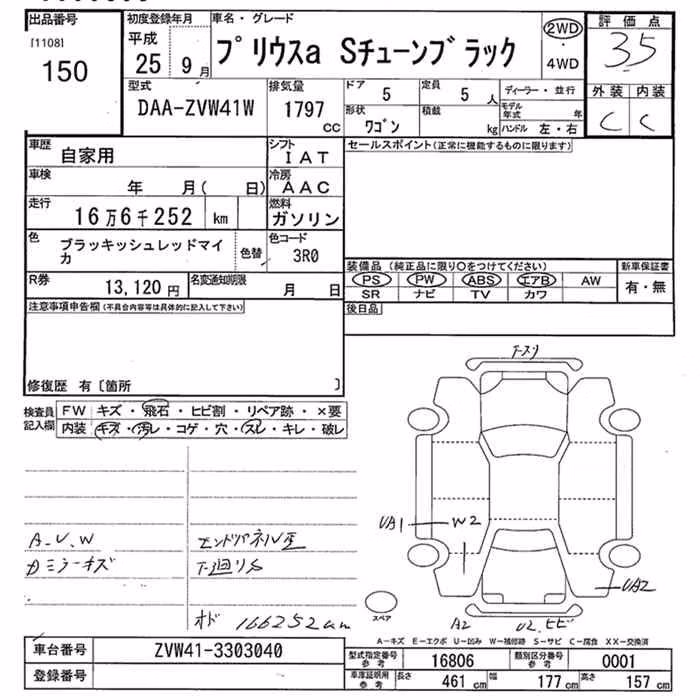 出品番号
[1108]
150
初度登録年月
平成
25 9月
車名・グレード
プリウスa Sチューンブラック
2WD
・
4WD
評価点
3.5
外装 内装
C C
型式
DAA-ZVW41W
排気量
1797 CC
ドア
5
定員
5 人
形状
ワゴン
積載
kg
ディーラー・並行
モデル年式 年
ハンドル 左・右
車歴
自家用
シフト
IAT
車検
年 月( 日)
冷房
AAC
走行
16万6千252 km
燃料
ガソリン
色
ブラッキッシュレッドマイカ
色替
色コード
3R0
R券
13,120円
名変通知期限
月 日
セールスポイント(正常に機能するものに限ります)
装備品(純正品に限り○をつけてください)
PS PW ABS エアB AW
SR ナビ TV カワ
新車保証書
有・無
後日品
注意事項申告欄(不具合内容等は具体的に記入して下さい)
修復歴 有〔箇所 〕
検査員記入欄
FW キズ・飛石・ヒビ割・リペア跡・×要
内装 キズ・汚レ・コゲ・穴・スレ・キレ・破レ
A.U.W
ミラーキズ
エンドパネル
下廻りS
オド 166252km
UA1
W2
UA2
A2
U2 ヒビ
スペア
A-キズ E-エクボ U-凹み W-補修跡 S-サビ C-腐食 XX-交換済
車台番号
ZVW41-3303040
登録番号
型式指定番号
参考
16806
類別区分番号
参考
0001
車庫証明用
参考
長さ 461 cm
幅 177 cm
高さ 157 cm